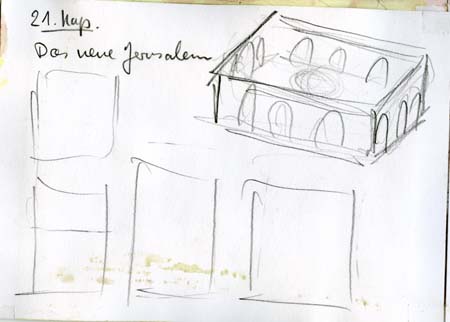 21. Kap.
Das neue Jerusalem